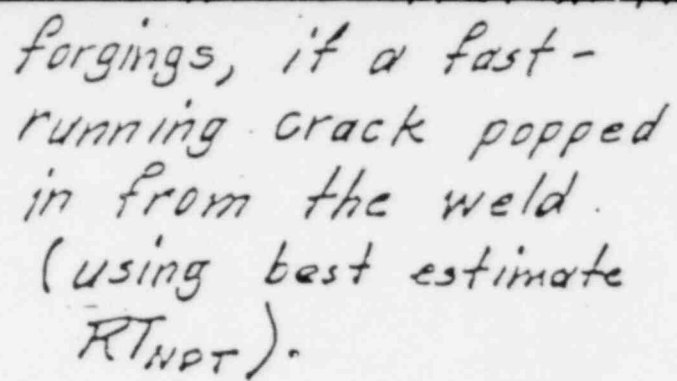 forgings, if a fast-
running crack popped
in from the weld.
(using best estimate
RTNDT).